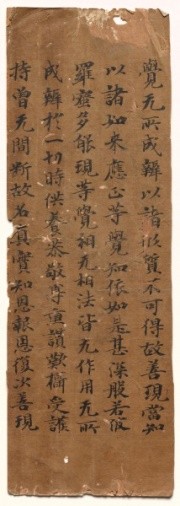 覺无所成辦以諸形質不可得故善現當知
以諸如來應正等覺知依如是甚深般若波
羅蜜多能現等覺相无相法皆无作用无所
成辦於一切時供養恭敬尊重讚歎攝受護
持曾无間斷故名真實知恩報恩復次善現